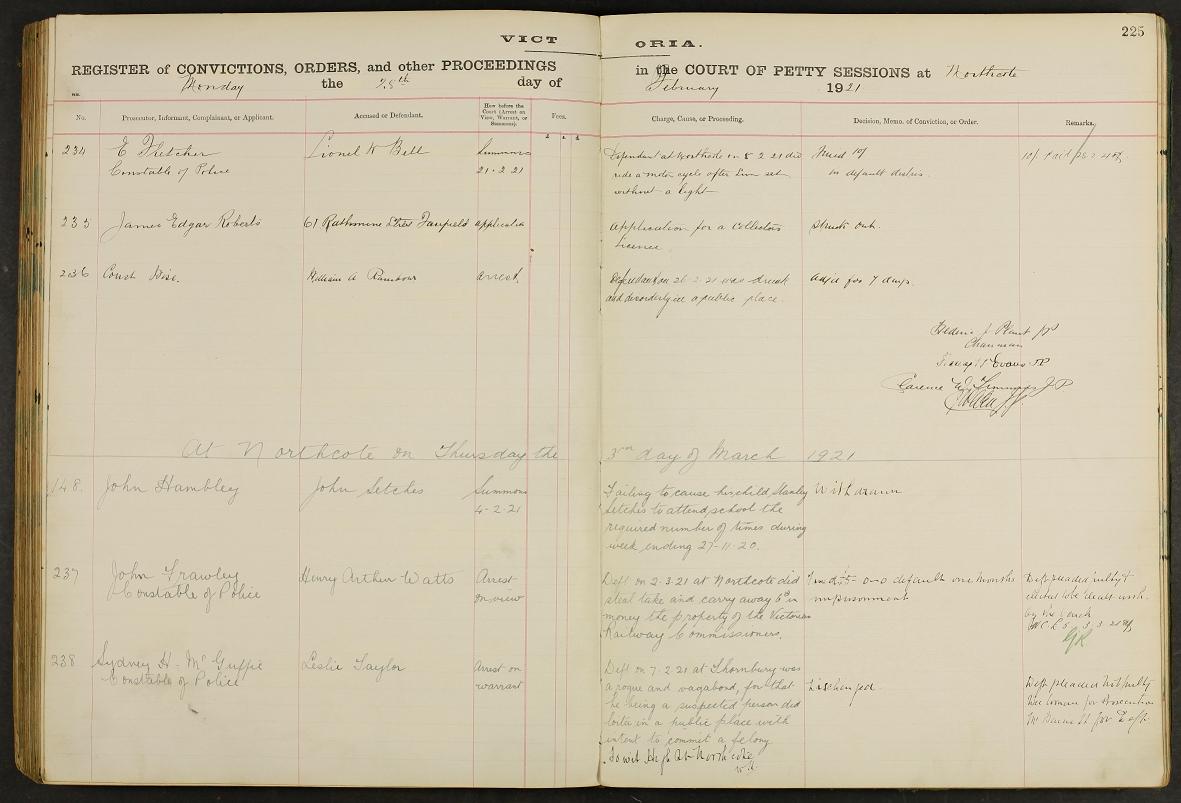 225
VICTORIA.
REGISTER of CONVICTIONS, ORDERS, and other PROCEEDINGS in the COURT OF PETTY SESSIONS at Northcote
Monday the 28th day of February 1921
No. Prosecutor, Informant, Complainant, or Applicant. Accused or Defendant. How before the Court (Arrest on View, Warrant, or Summons). Fees. Charge, Cause, or Proceeding. Decision, Memo. of Conviction, or Order. Remarks.
£ s d
234 E Fletcher Lionel W Bell Summons Defendant at Northcote on 8 2 21 did Fined 10/
Constable of Police 21-2-21 ride a motor cycle after Sun set in default distress
without a light
235 James Edgar Roberts 61 Rathmine Street Fairfield application application for a Collectors Struck out.
Licence
236 Const Wise. William A arrest Defendant on 26-2-21 was drunk adjd for 7 days.
and disorderly in a public place.
J Plant JP
Chairman
Evans JP
Clarence W. JP
At Northcote on Thursday the 3rd day of March 1921
148. John Hambley John Setches Summons Failing to cause his child Stanley Withdrawn
4-2-21 Setches to attend school the
required number of times during
week ending 27-11-20.
237 John Frawley Henry Arthur Watts Arrest Deft on 2-3-21 at Northcote did Fined £5-0-0 default one months Deft pleaded guilty &
Constable of Police on view steal take and carry away 6d in imprisonment elected to be dealt with
money the property of the Victorian by the bench
Railway Commissioners.
GR
238 Sydney H. McGuffie Leslie Taylor Arrest on Deft on 7-2-21 at Thornbury was
Constable of Police warrant a rogue and vagabond, for that Discharged. Deft pleaded not guilty
he being a suspected person did for Prosecution
loiter in a public place with for Deft.
intent to commit a felony
To wit High St Northcote